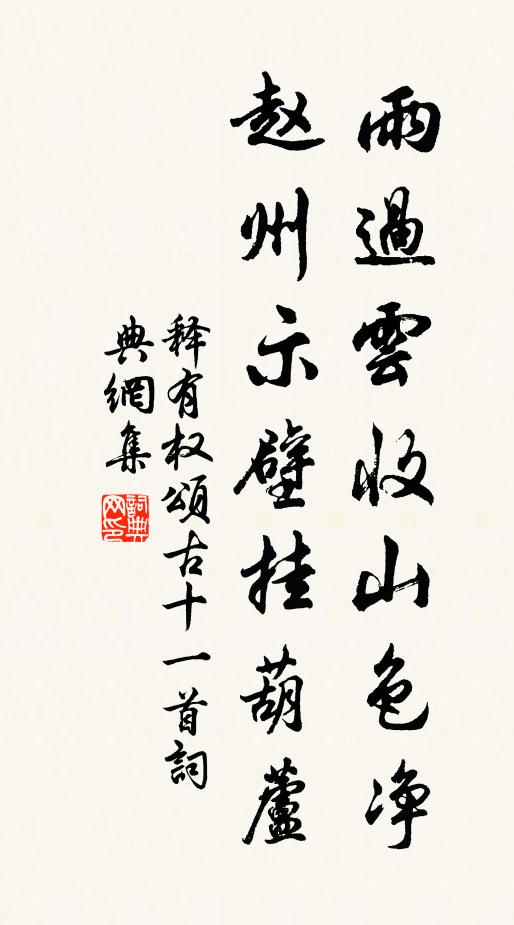 雨過雲收山色净
赵州示壁挂葫蘆
释有权頌古十一首詞
典網集
詞典网印